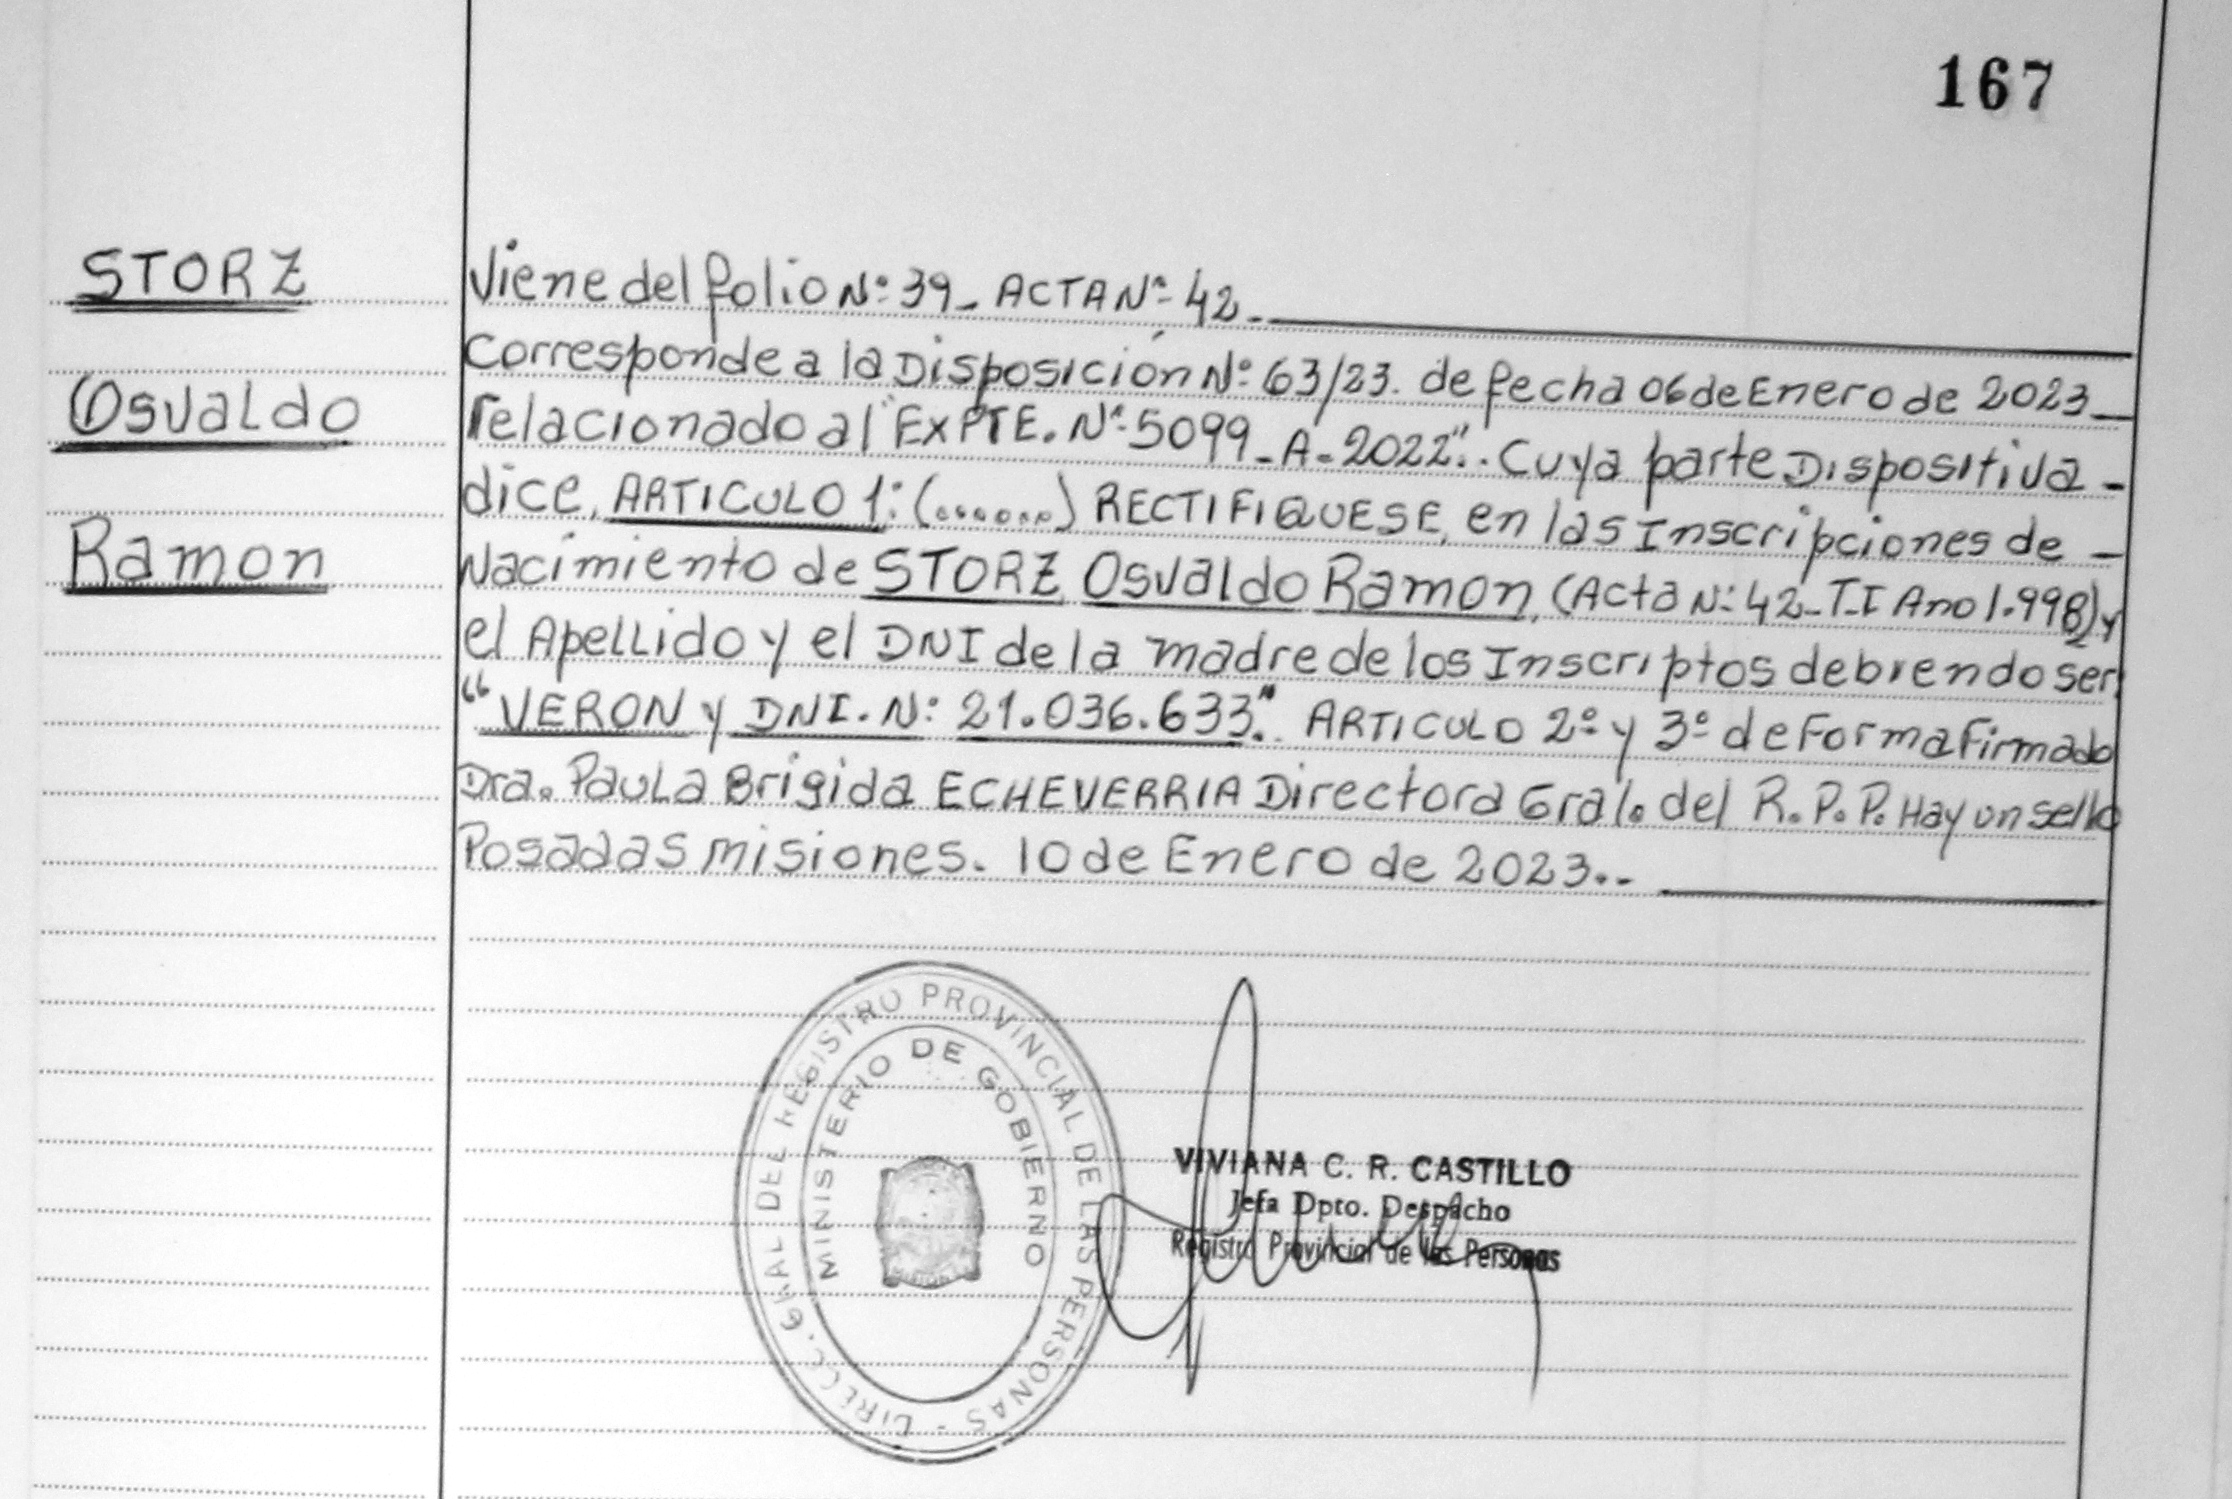 167
STORZ
Osvaldo
Ramon
Viene del folio Nº 39 - ACTA Nº 42 -
Corresponde a la Disposición Nº 63/23. de fecha 06 de Enero de 2023
relacionado al "EXPTE. Nº 5099 - A - 2022". Cuya parte Dispositiva -
dice, ARTICULO 1: (.......) RECTIFIQUESE, en las Inscripciones de -
Nacimiento de STORZ, Osvaldo Ramon, (Acta Nº 42 - T - I Año 1.998) y
el Apellido y el DNI de la madre de los Inscriptos debiendo ser,
"VERON y DNI. Nº 21.036.633". ARTICULO 2º y 3º de Forma Firmado
Dra. Paula Brigida ECHEVERRIA Directora Gral. del R.P.P. Hay un sello
Posadas misiones. 10 de Enero de 2023.-
DIRECC. GRAL DEL REGISTRO PROVINCIAL DE LAS PERSONAS -
MINISTERIO DE GOBIERNO
VIVIANA C. R. CASTILLO
Jefa Dpto. Despacho
Registro Provincial de las Personas